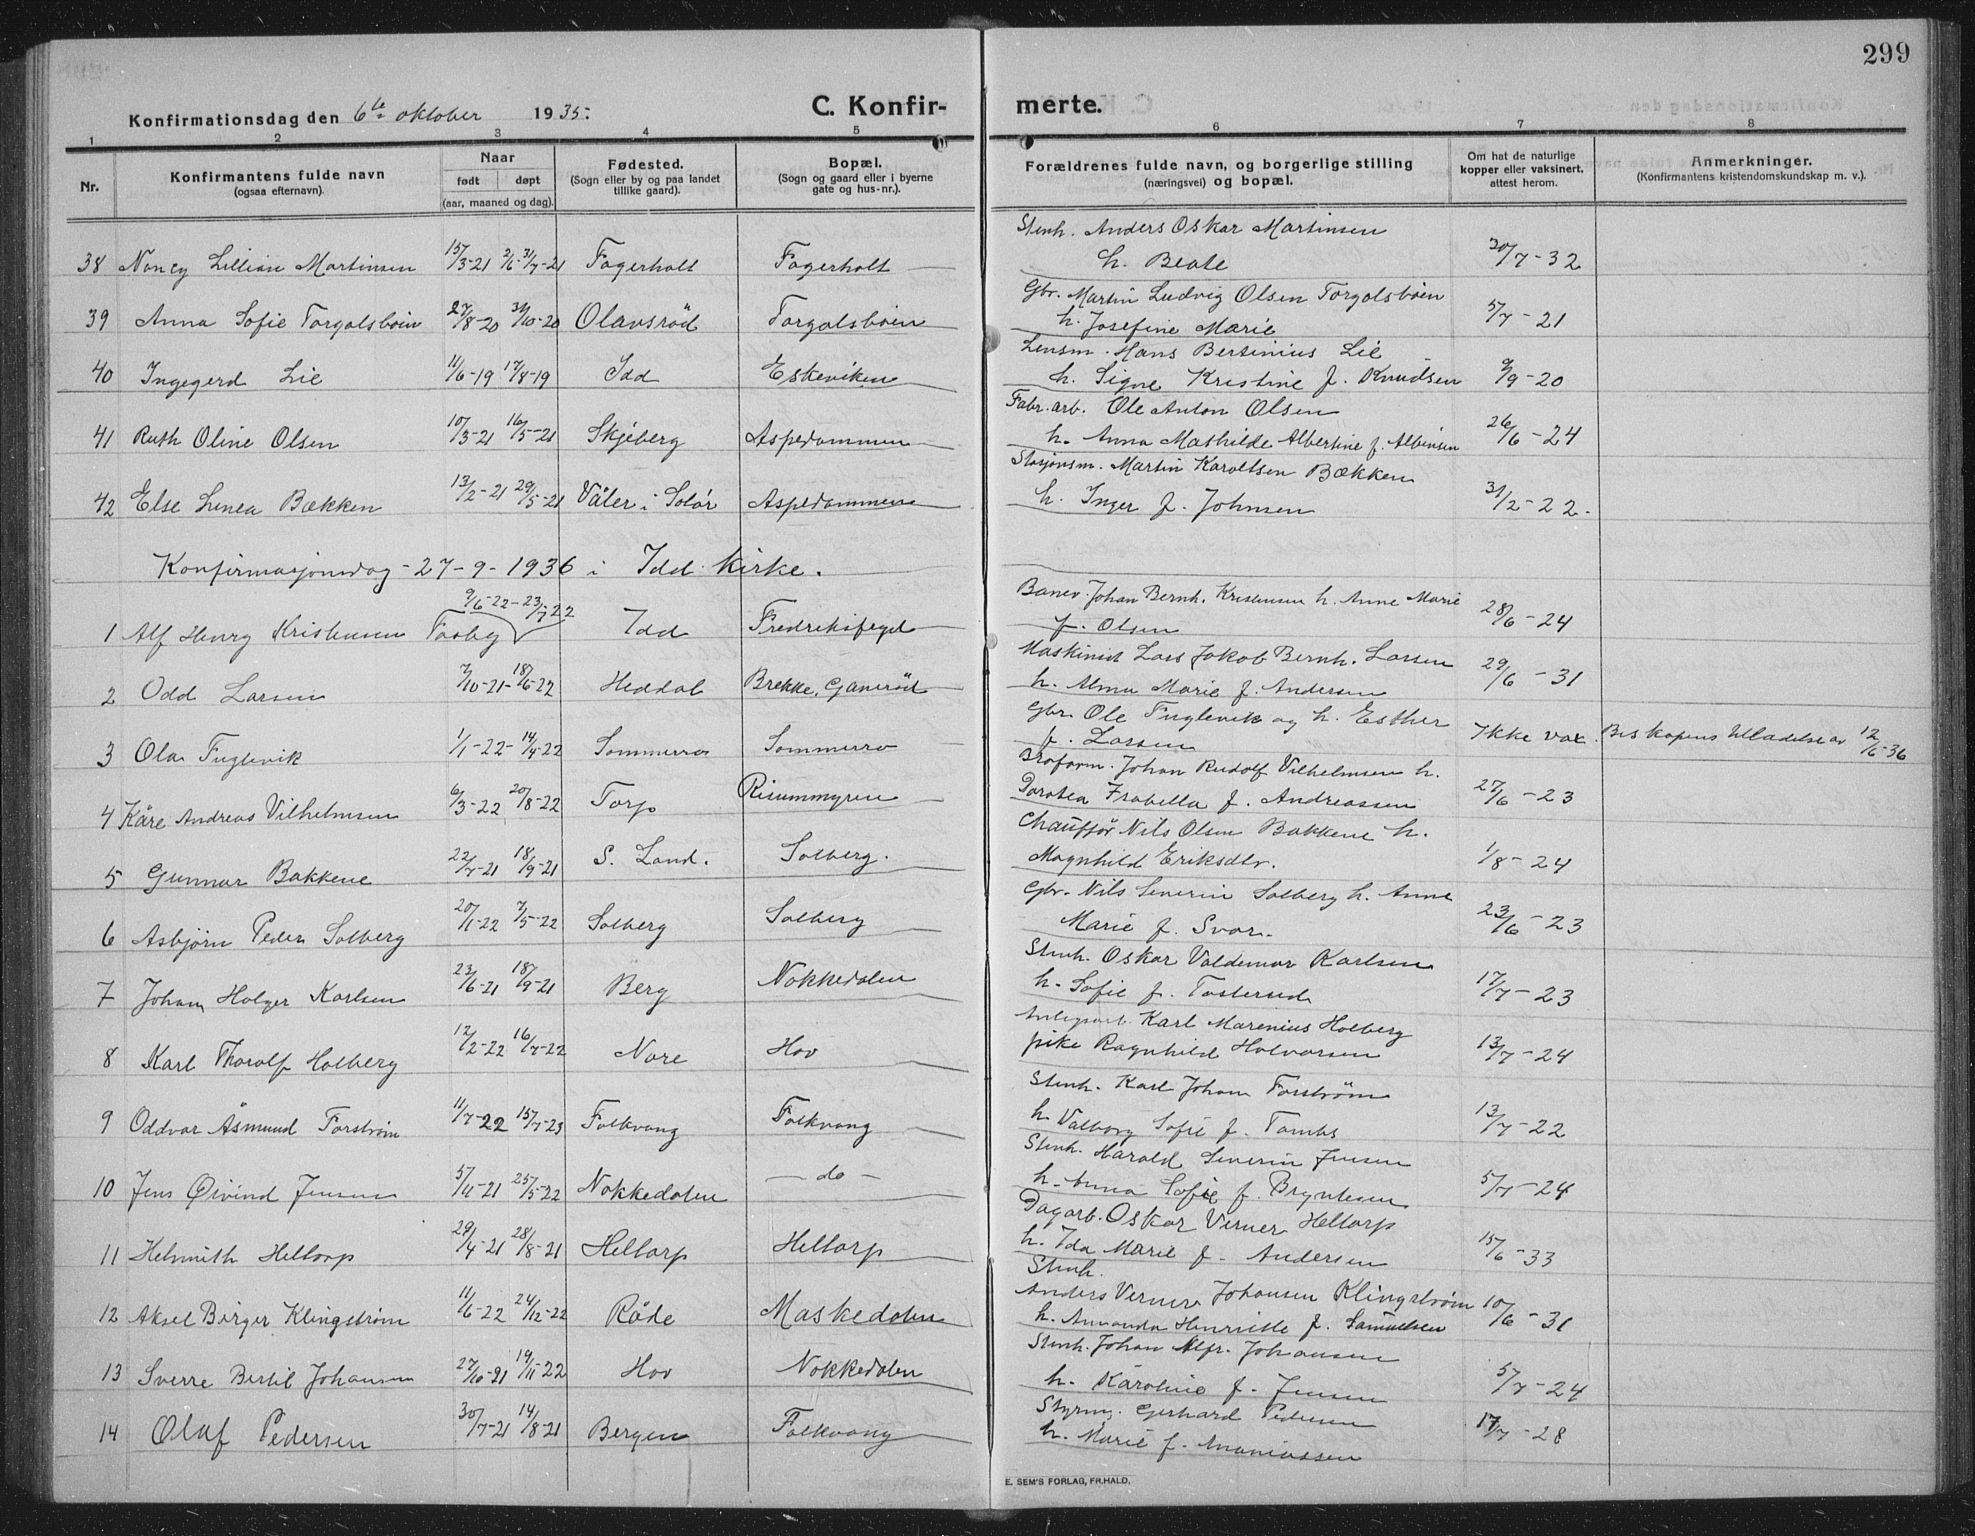 299
Konfirmationsdag den 6te oktober 1935.
C. Konfirmerte.
1 2 3 4 5 6 7 8
Nr.
Konfirmantens fulde navn
(ogsaa efternavn).
Naar
født døpt
(aar, maaned og dag).
Fødested.
(Sogn eller by og paa landet
tillike gaard).
Bopæl.
(Sogn og gaard eller i byerne
gate og hus-nr.).
Forældrenes fulde navn, og borgerlige stilling
(næringsvei) og bopæl.
Om hat de naturlige
kopper eller vaksinert,
attest herom.
Anmerkninger.
(Konfirmantens kristendomskundskap m. v.).
Stenh. Anders Oskar Martinsen
38 Nancy Lillian Martinsen 15/3-21 31/7-21 Fagerholt Fagerholt h. Beate 30/7-32
Gbr. Martin Ludvig Olsen Torgalsbøen
39 Anna Sofie Torgalsbøen 27/8-20 31/10-20 Olavsrød Torgalsbøen h. Josefine Marie 5/7-21
Lensm. Hans Bertinius Lie
40 Ingegerd Lie 11/6-19 17/8-19 Idd Eskeviken h. Signe Kristine f. Knudsen 9/9-20
Fabr. arb. Ole Anton Olsen
41 Ruth Oline Olsen 10/3-21 16/5-21 Skjeberg Aspedammen h. Anna Mathilde Albertine f. Albinsen 26/6-24
Stasjonsm. Martin Karoltsen Bækken
42 Else Linea Bækken 13/2-21 29/5-21 Våler i Solør Aspedammen h. Inger f. Johnsen 31/2-22.
Konfirmasjonsdag - 27-9-1936 i Idd kirke.
Banev. Johan Bernh. Kristensen h. Anne Marie
1 Alf Henry Kristensen Taaby 9/6-22 - 23/7-22 Idd Fredriksfryd f. Olsen 28/6-24
Maskinist Lars Jakob Bernh. Larsen
2 Odd Larsen 7/10-21 - 18/6-22 Heddal Brekke, Ganerød h. Alma Marie f. Andersen 29/6-31
Gbr. Ole Fuglevik og h. Esther
3 Ola Fuglevik 1/1-22 - 14/4-22 Sommerro Sommerro f. Larsen Ikke vac. Biskopens tilladelse av 12/6-36
Broform. Johan Rudolf Vilhelmsen h.
4 Kåre Andreas Vilhelmsen 6/3-22 20/8-22 Torp Risummyren Dorotea Frabella f. Andreassen 27/6-23
Chauffør Nils Olsen Bakkene h.
5 Gunnar Bakkene 22/7-21 18/9-21 S. Land. Solberg. Magnhild Eriksdtr. 1/8-24
Gbr. Nils Severin Solberg h. Anne
6 Asbjørn Peder Solberg 20/1-22 7/5-22 Solberg Solberg Marie f. Svar. 23/6-23
Stenh. Oskar Valdemar Karlsen
7 Johan Holger Karlsen 23/6-21 18/9-21 Berg Nokkedalen h. Sofie f. Tosterud 17/7-23
Anlegsarb. Karl Marenius Holberg
8 Karl Thorolf Holberg 12/2-22 16/7-22 Nore Hov pike Ragnhild Halvorsen 13/7-24
Stenh. Karl Johan Forstrøm
9 Oddvar Åsmund Forstrøm 11/7-22 15/7-23 Folkvang Folkvang h. Valborg Sofie f. Tombs 13/7-22
Stenh. Harald Severin Jensen
10 Jens Øivind Jensen 5/11-21 25/5-22 Nokkedalen - do - h. Anna Sofie f. Bryntesen 5/7-24
Dagarb. Oskar Verner Heltorp
11 Helmuth Heltorp 29/4-21 28/8-21 Heltorp Heltorp h. Ida Marie f. Andersen 15/6-33
Stenh.
Anders Verner Johansen Klingstrøm
12 Aksel Birger Klingstrøm 11/6-22 24/12-22 Råde Maskedalen h. Amanda Henriette f. Samuelsen 10/6-31
Stenh. Johan Alfr. Johansen
13 Sverre Bertil Johansen 27/10-21 19/11-22 Hov Nokkedalen h. Karoline f. Jensen 5/7-24
Styrm. Gerhard Pedersen
14 Olaf Pedersen 30/7-21 14/8-21 Bergen Folkvang h. Marie f. Ananiassen 17/7-28
E. SEM'S FORLAG, FR.HALD.